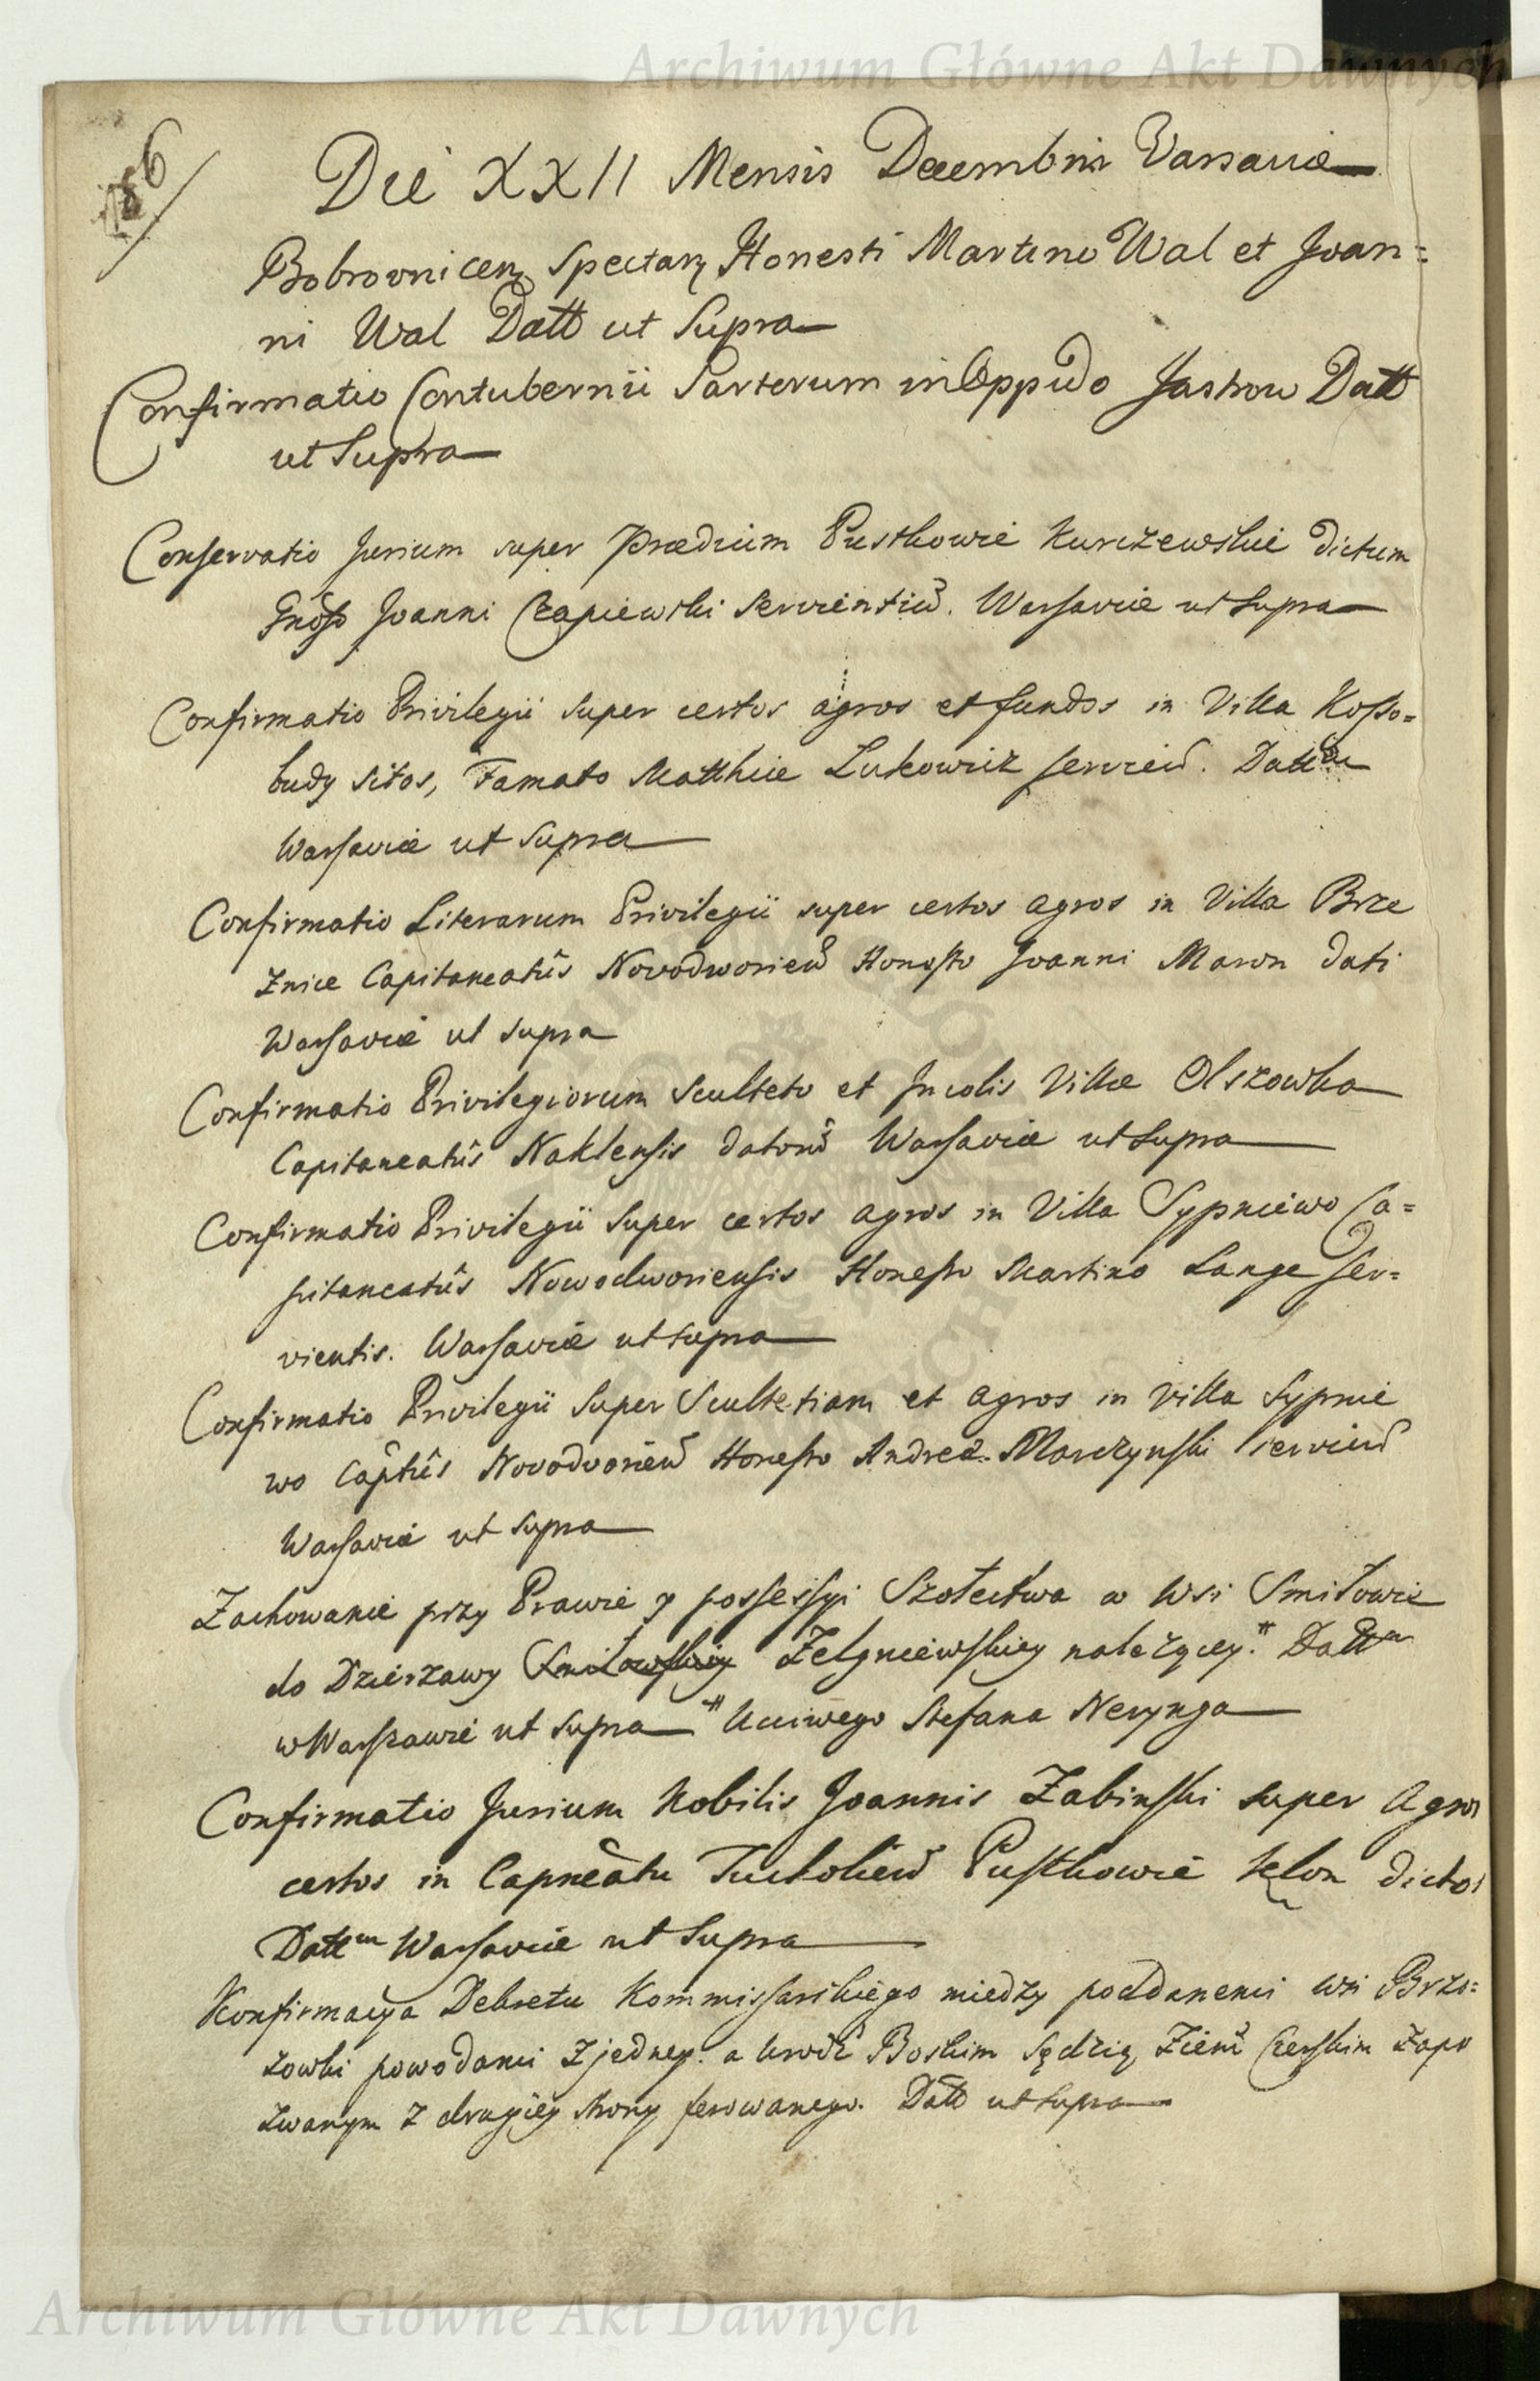 Archiwum Główne Akt Dawnych
186
Die XXII Mensis Decembris Varsaviæ
Bobrovnicen Spectan Honesti Martino Wal et Joan=
ni Wal Datt ut Supra
Confirmatio Contubernii Sartorum in Oppido Jastrow Datt
ut Supra
Conservatio Jurium super Prædium Pustkowie Kurczewskie dictum
Gnoso Joanni Czapiewski servien. Warsaviæ ut supra
Confirmatio Privilegii super certos agros et fundos in Villa Kosso=
budy sitos, Famato Matthiæ Lukowicz servien. Dattm
Warsaviæ ut supra
Confirmatio Literarum Privilegii super certos agros in Villa Brze
znice Capitaneatûs Novodworien Honesto Joanni Maron dati
Warsaviæ ut supra
Confirmatio Privilegiorum Sculteto et Incolis Villæ Olszowka
Capitaneatûs Naklensis dator Warsaviæ ut supra
Confirmatio Privilegii super certos agros in Villa Sypniewo Ca=
pitaneatûs Nowodworiensis Honesto Martino Lange ser=
vientis. Warsaviæ ut supra
Confirmatio Privilegii super Scultetiam et agros in Villa Sypnie
wo Capttûs Novodvorien Honesto Andreæ Marczynski servien
Warsaviæ ut supra
Zachowanie przy Prawie y possessyi Szołectwa w Wsi Smiłowie
do Dzierzawy Smiłowskiey Zelgniewskiey należącey." Dattm
w Warszawie ut supra " Ucciwego Stefana Nerynga
Confirmatio Jurium Nobilis Joannis Zabinski super Agros
certos in Capneatu Tucholien Pustkowie Kłon dictos
Dattm Warsaviæ ut Supra
Konfirmacya Dekretu Kommissarskiego między poddanemi wsi Brzo=
zowki powodami z jedney. a Urodz Boskim Sędzią Ziem Czerskim zapo
zwanym z drugiey strony ferowanego. Datt ut supra
Archiwum Główne Akt Dawnych